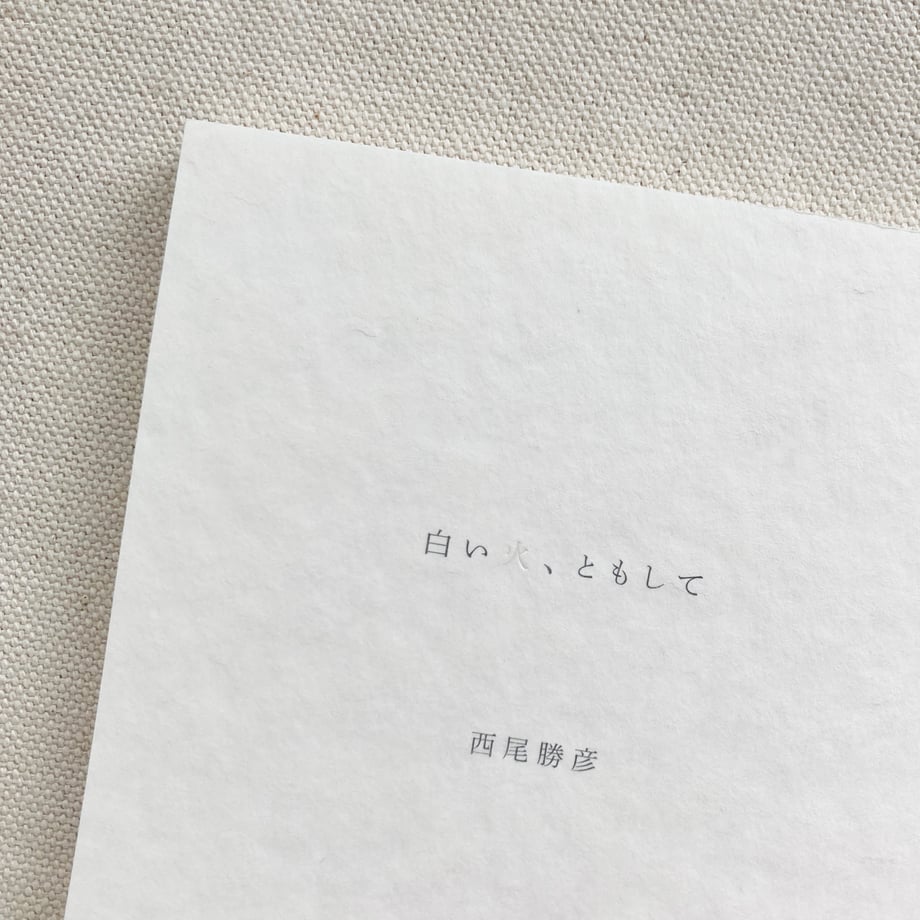 白い火、ともして
西尾勝彦